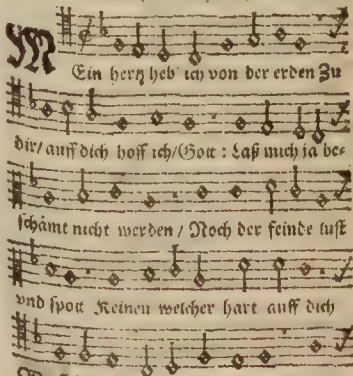 MEin hertz heb' ich von der erden Zu
dir/ auff dich hoff ich/Gott : Laß mich ja be-
schämt nicht werden / Noch der feinde lust
vnd spott Keinen welcher hart auff dich